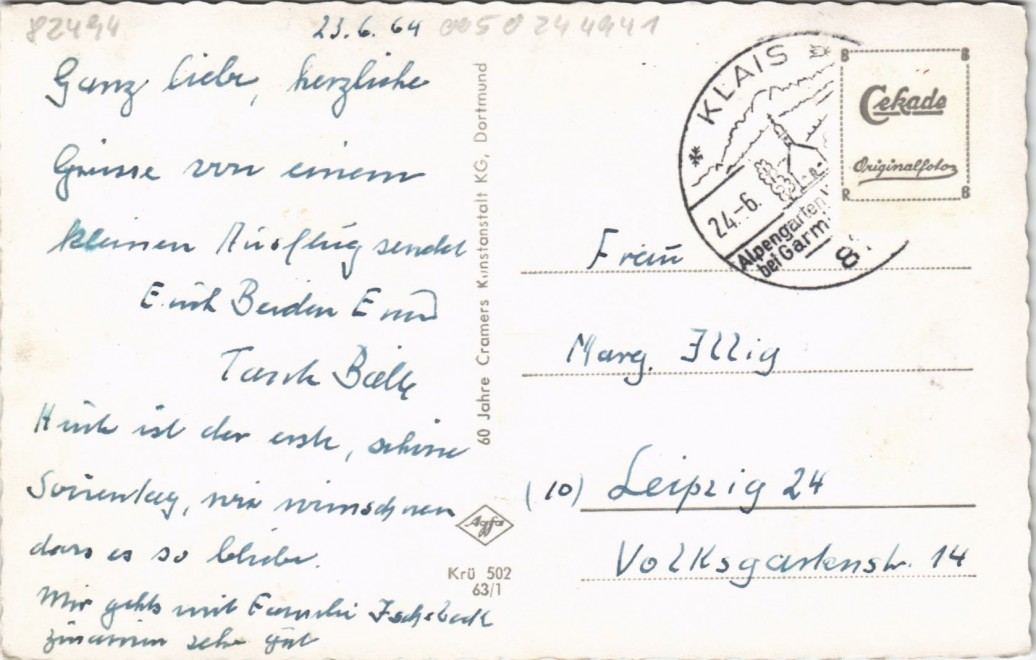 82494
23.6.64
0050244941
Ganz liebe, herzliche
Grüsse von einem
kleinen Ausflug sendet
Euch Beiden E und
Heute ist der erste, schöne
Sonnentag, wir wünschen
dass es so bliebe.
Mir gehts mit Familie
zusammen sehr gut
60 Jahre Cramers Kunstanstalt KG, Dortmund
Agfa
Krü 502
63/1
KLAIS
24.-6.
Alpengarten
bei Garm
8
B B
Cekade
Originalfoto
R B
Frau
Marg. Illig
(10) Leipzig 24
Volksgartenstr. 14